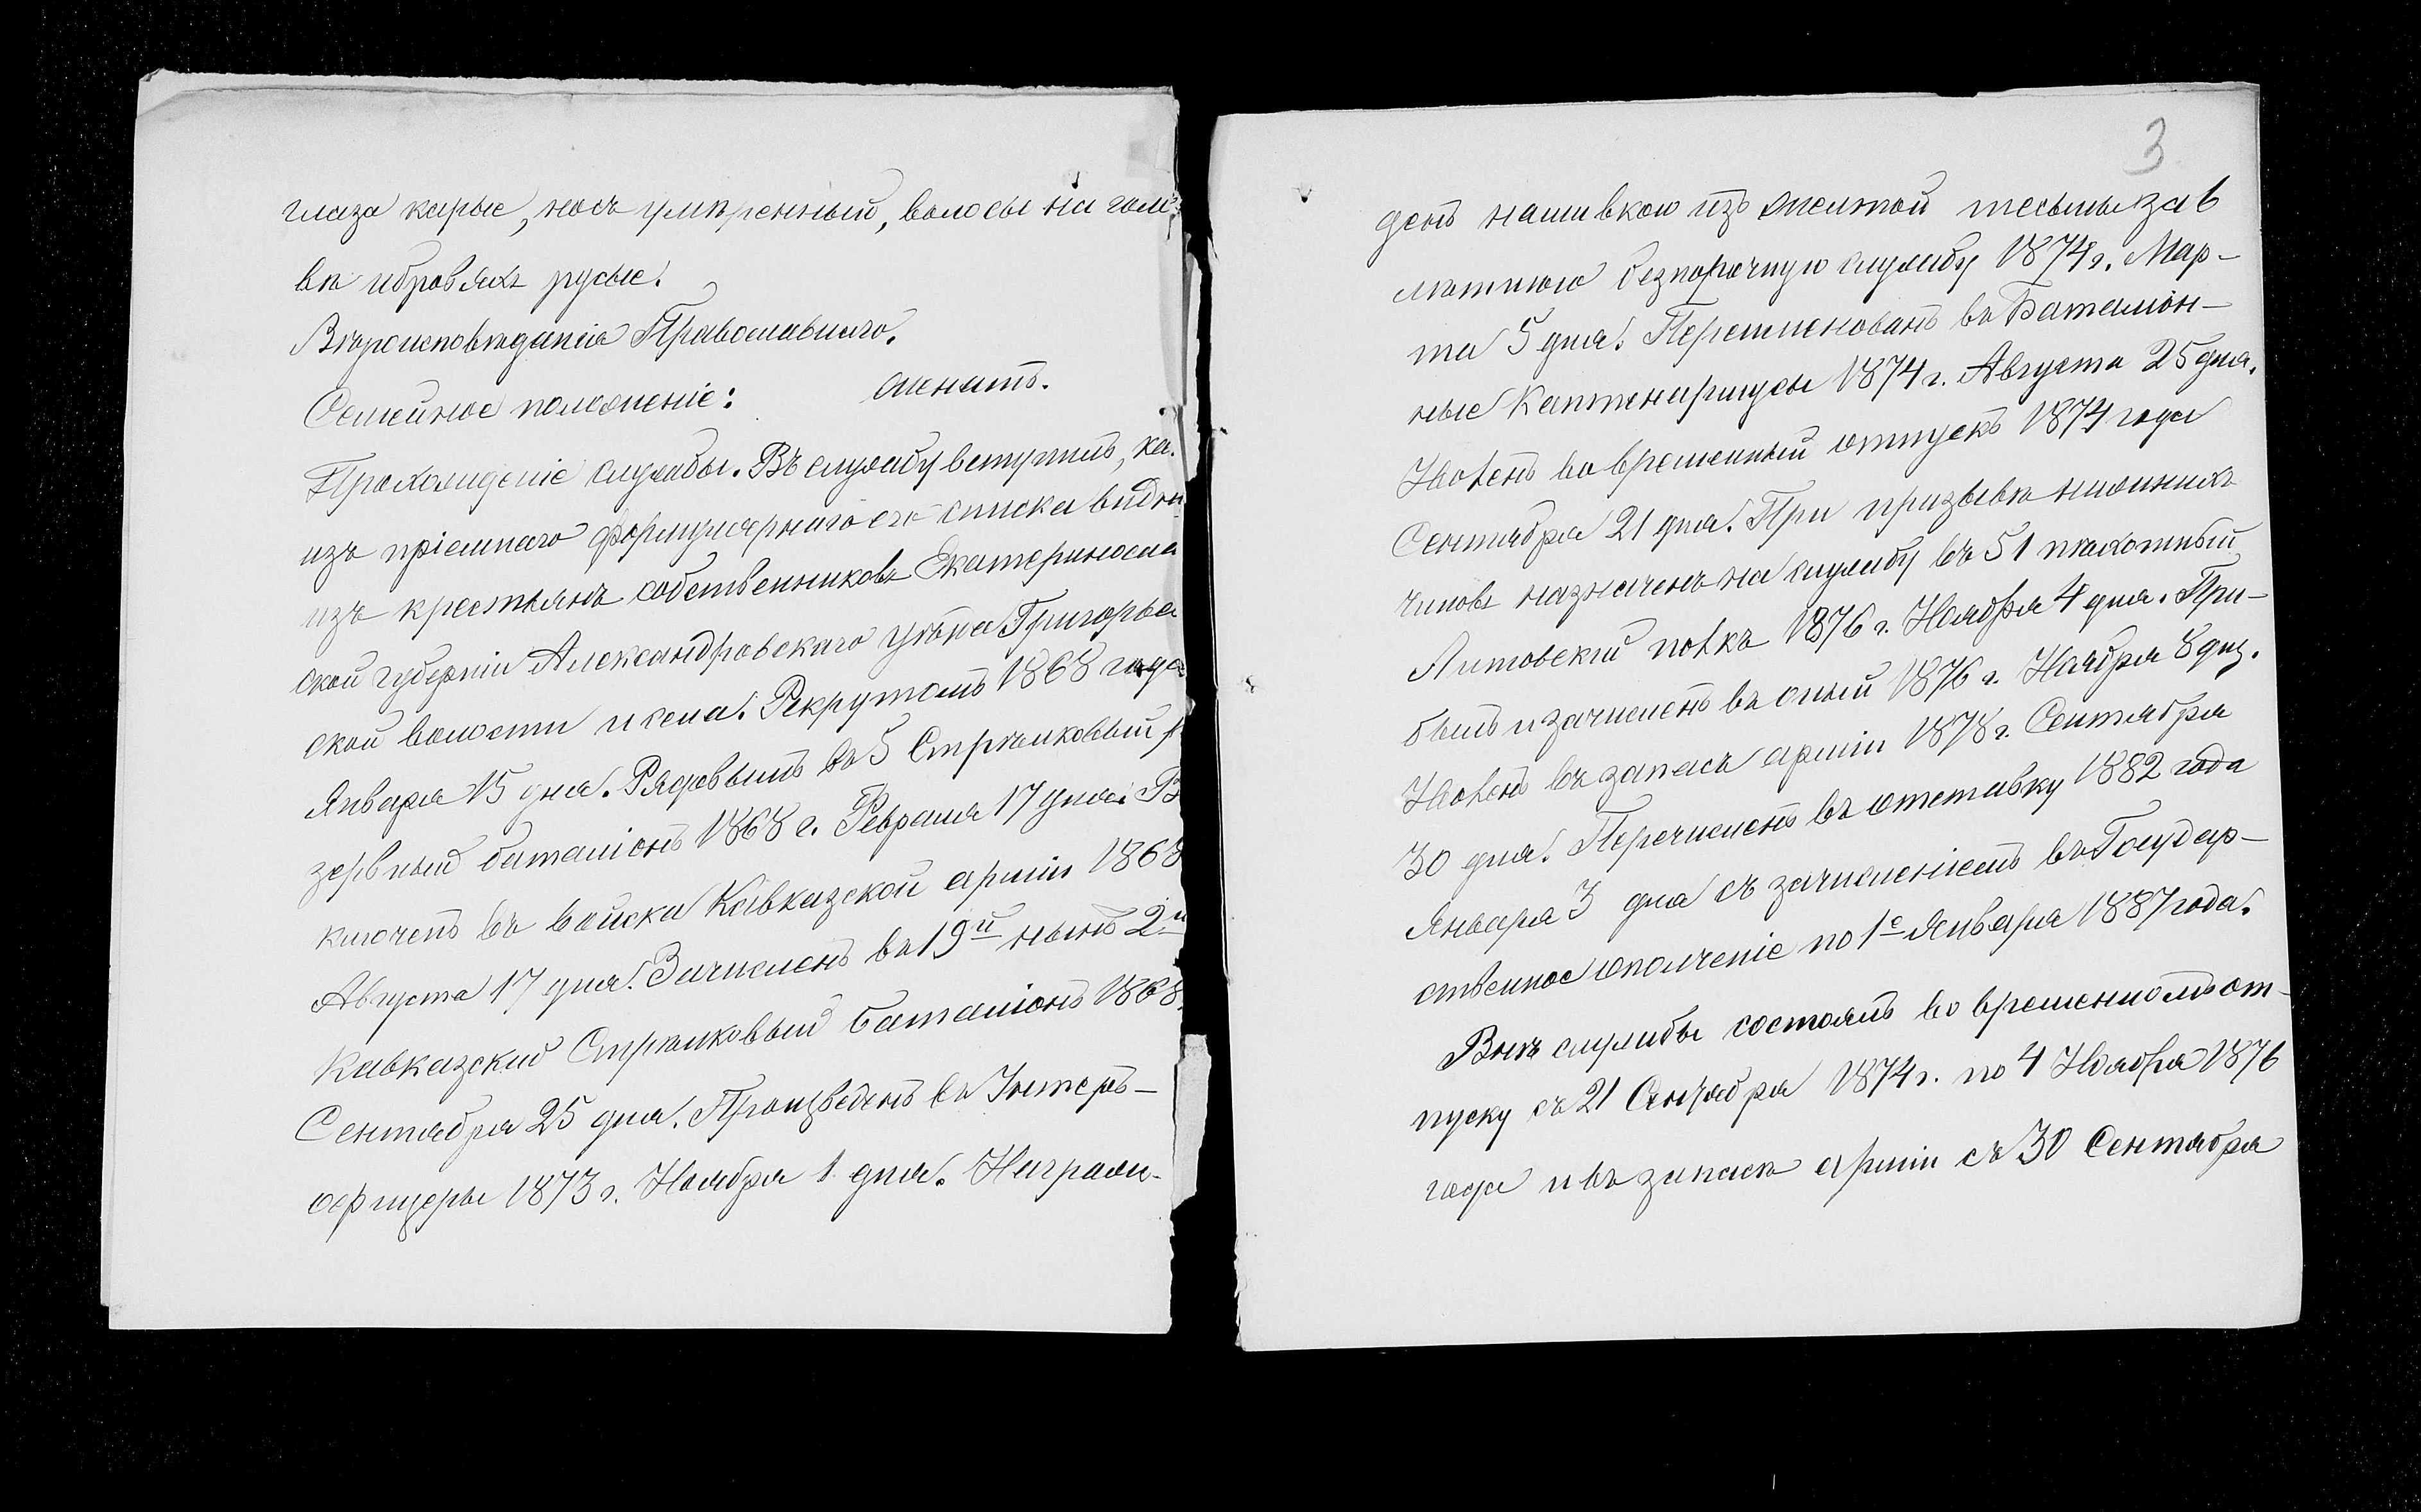 глаза карые, носъ умѣренный, волосы на голо-
вѣ и бровяхъ русые.
Вѣроисповѣданія Православнаго.
Семейное положеніе: женатъ.
Прохожденіе службы. Въ службу вступилъ, ка.
изъ пріемнаго формулярнаго его списка видн
изъ крестьянъ собственниковъ Екатериносла
ской губерніи Александровскаго уѣзда Григорьев
ской волости и села. Рекрутомъ 1868 года
Января 15 дня. Рядовымъ въ 5 Стрѣлковый р
зервный баталіонъ 1868 г. Февраля 17 дня. В
ключенъ въ войска Кавказской арміи 1868
Августа 17 дня. Зачисленъ въ 19й нынѣ 2й
Кавказскій Стрѣлковый баталіонъ 1868
Сентября 25 дня. Произведенъ въ Унтеръ-
офицеры 1873 г. Ноября 1 дня. Награж-
3
денъ нашивкою изъ желтой тесьмы за 6
лѣтнюю безпорочную службу 1874 г. Мар-
та 5 дня. Переименованъ въ Баталіон-
ные Каптенармусы 1874 г. Августа 25 дня.
Уволенъ во временный отпускъ 1874 года
Сентября 21 дня. При призывѣ нижнихъ
чиновъ назначенъ на службу въ 51 пѣхотный
Литовскій полкъ 1876 г. Ноября 4 дня. При-
былъ и зачисленъ въ оный 1876 г. Ноября 8 дня.
Уволенъ въ запасъ арміи 1878 г. Сентября
30 дня. Перечисленъ въ отставку 1882 года
Января 3 дня съ зачисленіемъ въ Государ-
ственное ополченіе по 1е Января 1887 года.
Внѣ службы состоялъ во временномъ от-
пуску съ 21 Сентября 1874 г. по 4 Ноября 1876
года и въ запасѣ арміи съ 30 Сентября